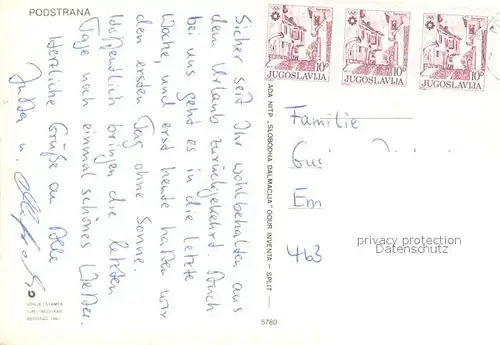 PODSTRANA
Sicher seit Ihr wohlbehalten aus
dem Urlaub zurückgekehrt. Auch
bei uns geht es in die letzte
Woche, und erst heute hatten wir
den ersten Tag ohne Sonne.
Hoffentlich bringen die letzten
Tage noch einmal schönes Wetter.
Herzliche Grüße an Alle
Jutta u.
ADA NITP „SLOBODNA DALMACIJA" OOUR INVENTA — SPLIT —
5780
10D
JUGOSLAVIJA
10D
JUGOSLAVIJA
10D
JUGOSLAVIJA
Familie
Em
463
privacy protection
Datenschutz